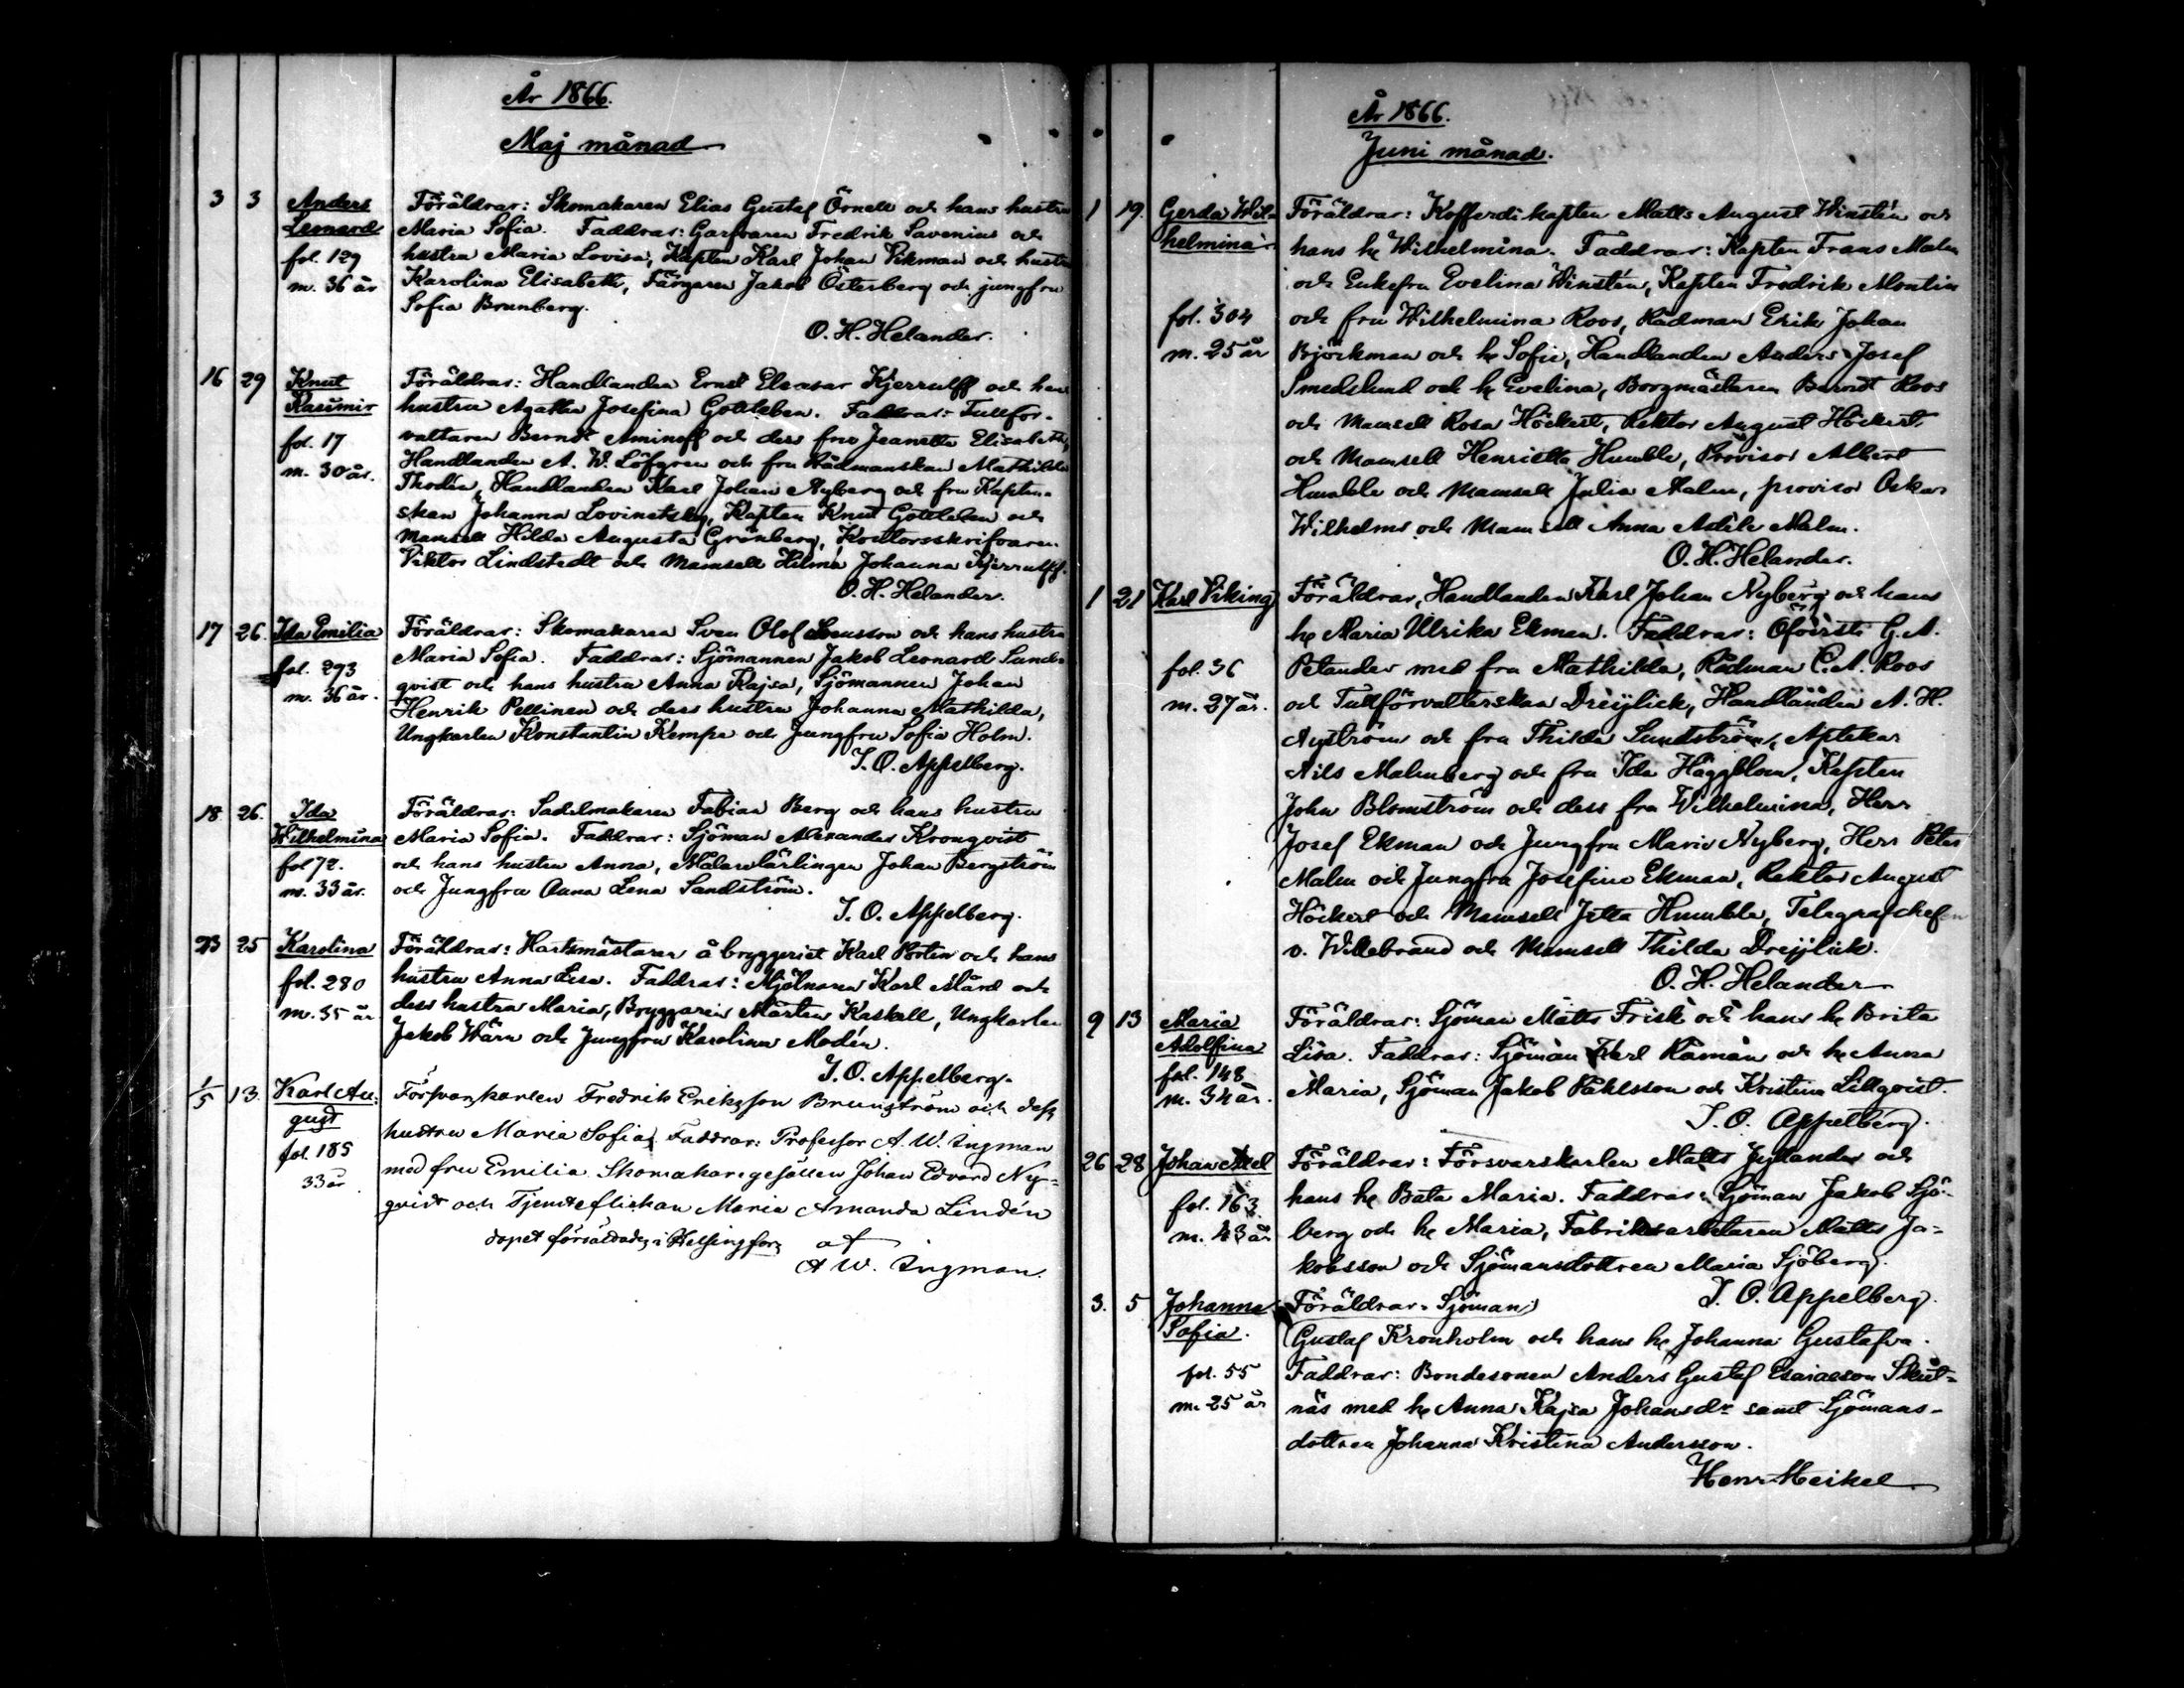 År 1866.
Maj månad
3 3 Anders Föräldrar: Skomakaren Elias Gustaf Örnell och hans hustru
Leonard Maria Sofia. Faddrar: Garfvaren Fredrik Savenius och
fol. 129 hustru Maria Lovisa, Kapten Karl Johan Vikman och hustru
m. 36 år Karolina Elisabeth, Färgaren Jakob Österberg och jungfru
Sofia Brunberg.
O. H. Helander.
16 29 Knut Föräldrar: Handlanden Ernst Eleasar Kjerrulff och hans
Kasimir hustru Agatha Josefina Gottleben. Faddrar: Tullför-
fol. 17 valtaren Berndt Aminoff och dess fru Jeanette Elisabeth,
m. 30 år. Handlanden A. W. Löfgren och fru Rådmanskan Mathilda
Thodén, Handlanden Karl Johan Nyberg och fru Kapten-
skan Johanna Lovinetsky, Kapten Knut Gottleben och
Mamsell Hilda Augusta Grönberg, Kontorsskrifvaren
Viktor Lindstedt och Mamsell Hilma Johanna Kjerrulff.
O. H. Helander.
17 26. Ida Emilia Föräldrar: Skomakaren Sven Olof Svensson och hans hustru
fol. 293 Maria Sofia. Faddrar: Sjömannen Jakob Leonard Sund-
m. 36 år. qvist och hans hustru Anna Kajsa, Sjömannen Johan
Henrik Pellinen och dess hustru Johanna Mathilda,
Ungkarlen Konstantin Kempe och Jungfru Sofia Holm.
I. O. Appelberg.
18 26. Ida Föräldrar: Sadelmakaren Fabian Berg och hans hustru
Wilhelmina Maria Sofia. Faddrar: Sjöman Alexander Kronqvist
fol 72. och hans hustru Anna, Målarelärlingen Johan Bergström
m. 33 år. och Jungfru Anna Lena Sandström.
I. O. Appelberg.
23 25 Karolina Föräldrar: Hartsmästaren å bryggeriet Karl Portin och hans
fol. 280 hustru Anna Lisa. Faddrar: Mjölnaren Karl Mård och
m. 35 år dess hustru Maria, Bryggaren Mårten Kaskell, Ungkarlen
Jakob Wärn och Jungfru Karolina Modén.
I. O. Appelberg.
1/5 13. Karl Au- Försvarskarlen Fredrik Eriksson Brunström och dess
gust hustru Maria Sofia. Faddrar: Professor A. W. Ingman
fol. 185 med fru Emilia Skomakaregesällen Johan Edvard Ny-
33 år qvist och Tjensteflickan Maria Amanda Lindén
dopet förrättades i Helsingfors af
A W. Ingman.
År 1866.
Juni månad.
1 19. Gerda Wil- Föräldrar: Kofferdikapten Matts August Winstén och
helmina hans h. Wilhelmina. Faddrar: Kapten Frans Malm
och Enkefru Evelina Winstén, Kapten Fredrik Montin
fol. 304 och fru Wilhelmina Roos, Rådman Erik Johan
m. 25 år Björkman och h. Sofie, Handlanden Anders Josef
Smedslund och h. Evelina, Borgmästaren Berndt Roos
och Mamsell Rosa Höckert, Rektor August Höckert
och Mamsell Henrietta Humble, Provisor Albert
Humble och Mamsell Julia Malm, provisor Oskar
Wilhelms och Mamsell Anna Adéle Malm.
O. H. Helander.
1 21 Karl Viking Föräldrar, Handlanden Karl Johan Nyberg och hans
h. Maria Ulrika Ekman. Faddrar: Öfverste G. A.
fol. 36 Petander med fru Mathilda, Rådman C. A. Roos
m. 27 år. och Tullförvalterskan Dreijlick, Handlanden A. H.
Nyström och fru Thilda Sundström, Aptekar
Nils Malmberg och fru Ida Häggblom, Kapten
John Blomström och dess fru Wilhelmina, Herr
Josef Ekman och Jungfru Maria Nyberg, Herr Peter
Malm och Jungfru Josefine Ekman, Rektor August
Höckert och Mamsell Jetta Humble, Telegrafchefen
v. Willebrand och Mamsell Thilda Dreijlick.
O. H. Helander
9 13 Maria Föräldrar: Sjöman Matts Frisk och hans h. Brita
Adolfina Lisa. Faddrar: Sjöman Karl Råman och h. Anna
fol. 148 Maria, Sjöman Jakob Pahlsson och Kristina Lillqvist.
m. 34 år. I. O. Appelberg.
26 28 Johan Axel Föräldrar: Försvarskarlen Matts Jyllander och
fol. 163. hans h. Beata Maria. Faddrar: Sjöman Jakob Sjö-
m. 43 år berg och h. Maria, Fabriksarbetaren Matts Ja-
kobsson och Sjömansdottren Maria Sjöberg.
I. O. Appelberg.
3. 5 Johanna Föräldrar. Sjöman
Sofia. Gustaf Kronholm och hans h. Johanna Gustafva.
fol. 55 Faddrar: Bondesonen Anders Gustaf Esaiasson Skut-
m. 25 år näs med h. Anna Kajsa Johansdr samt Sjömans-
dottren Johanna Kristina Andersson.
Henr Heikel